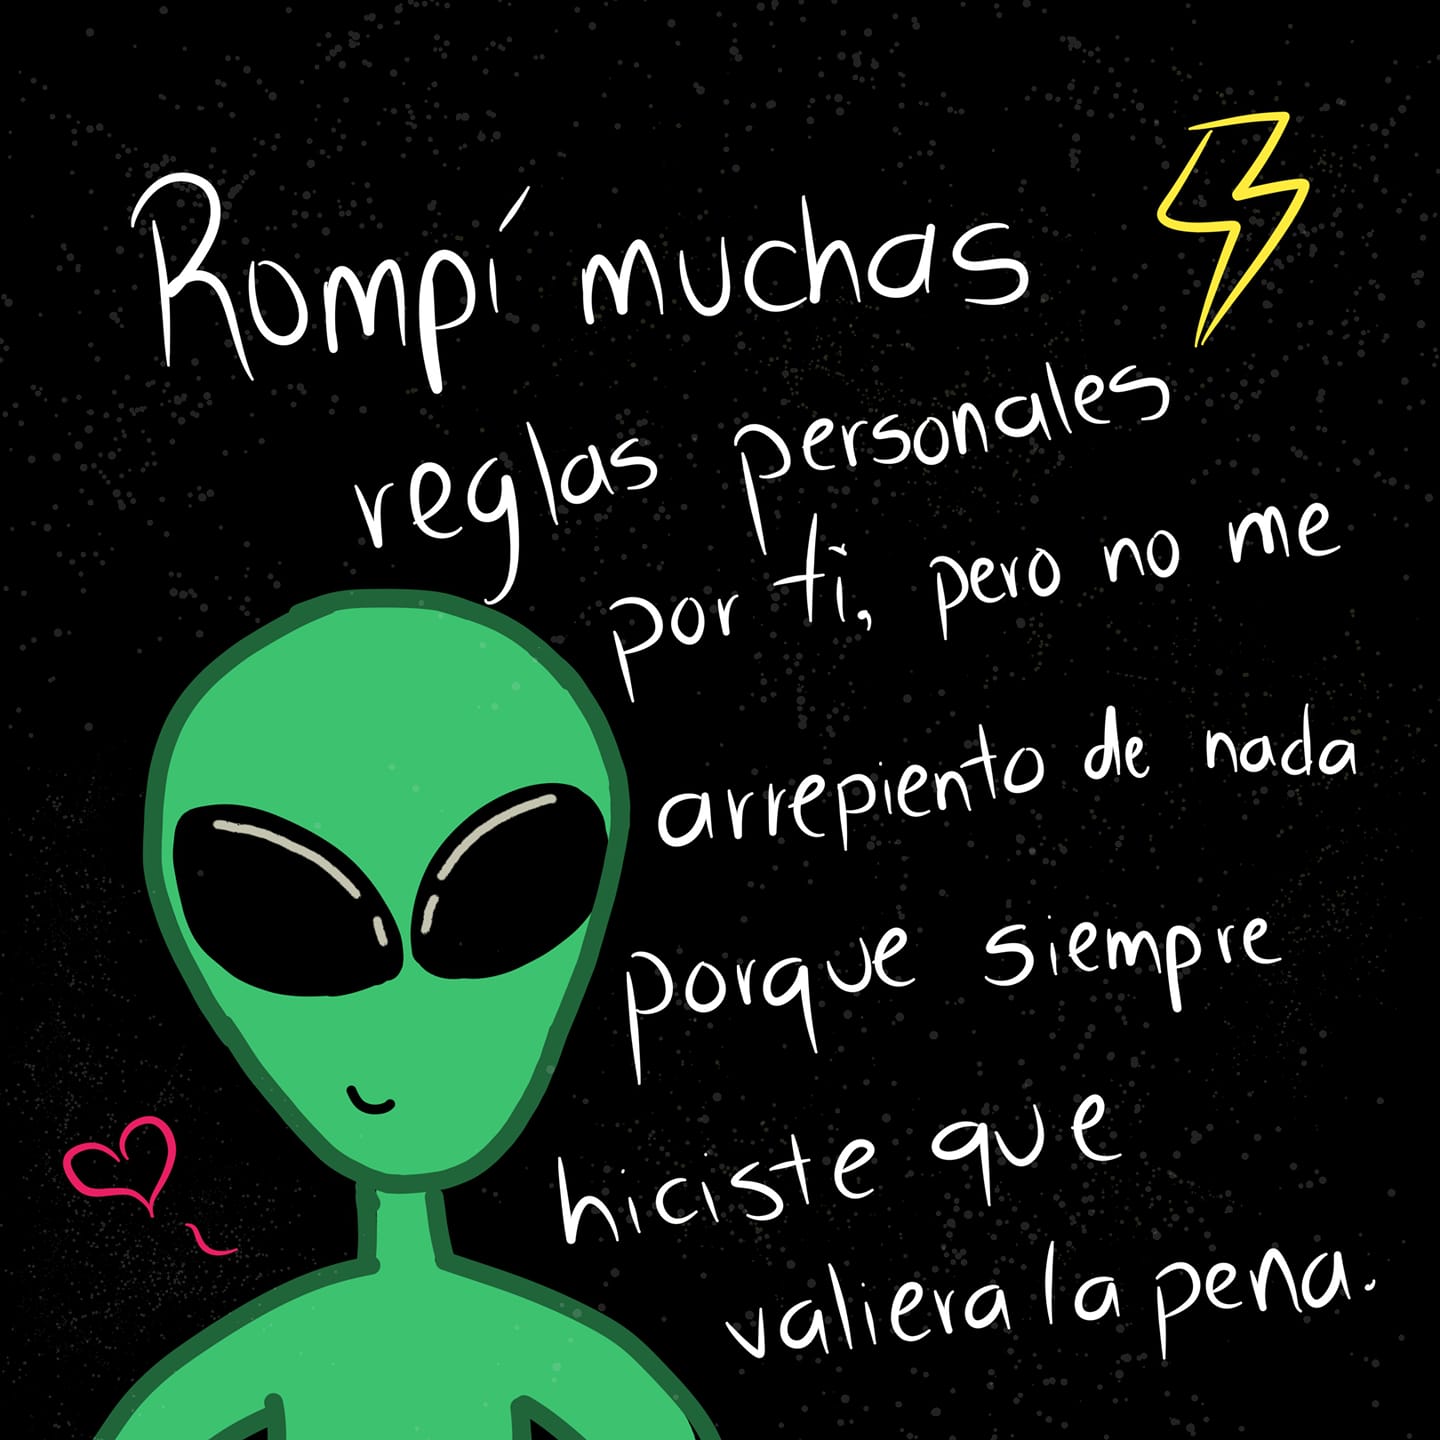 Rompí muchas
reglas personales
por ti, pero no me
arrepiento de nada
porque siempre
hiciste que
valiera la pena.